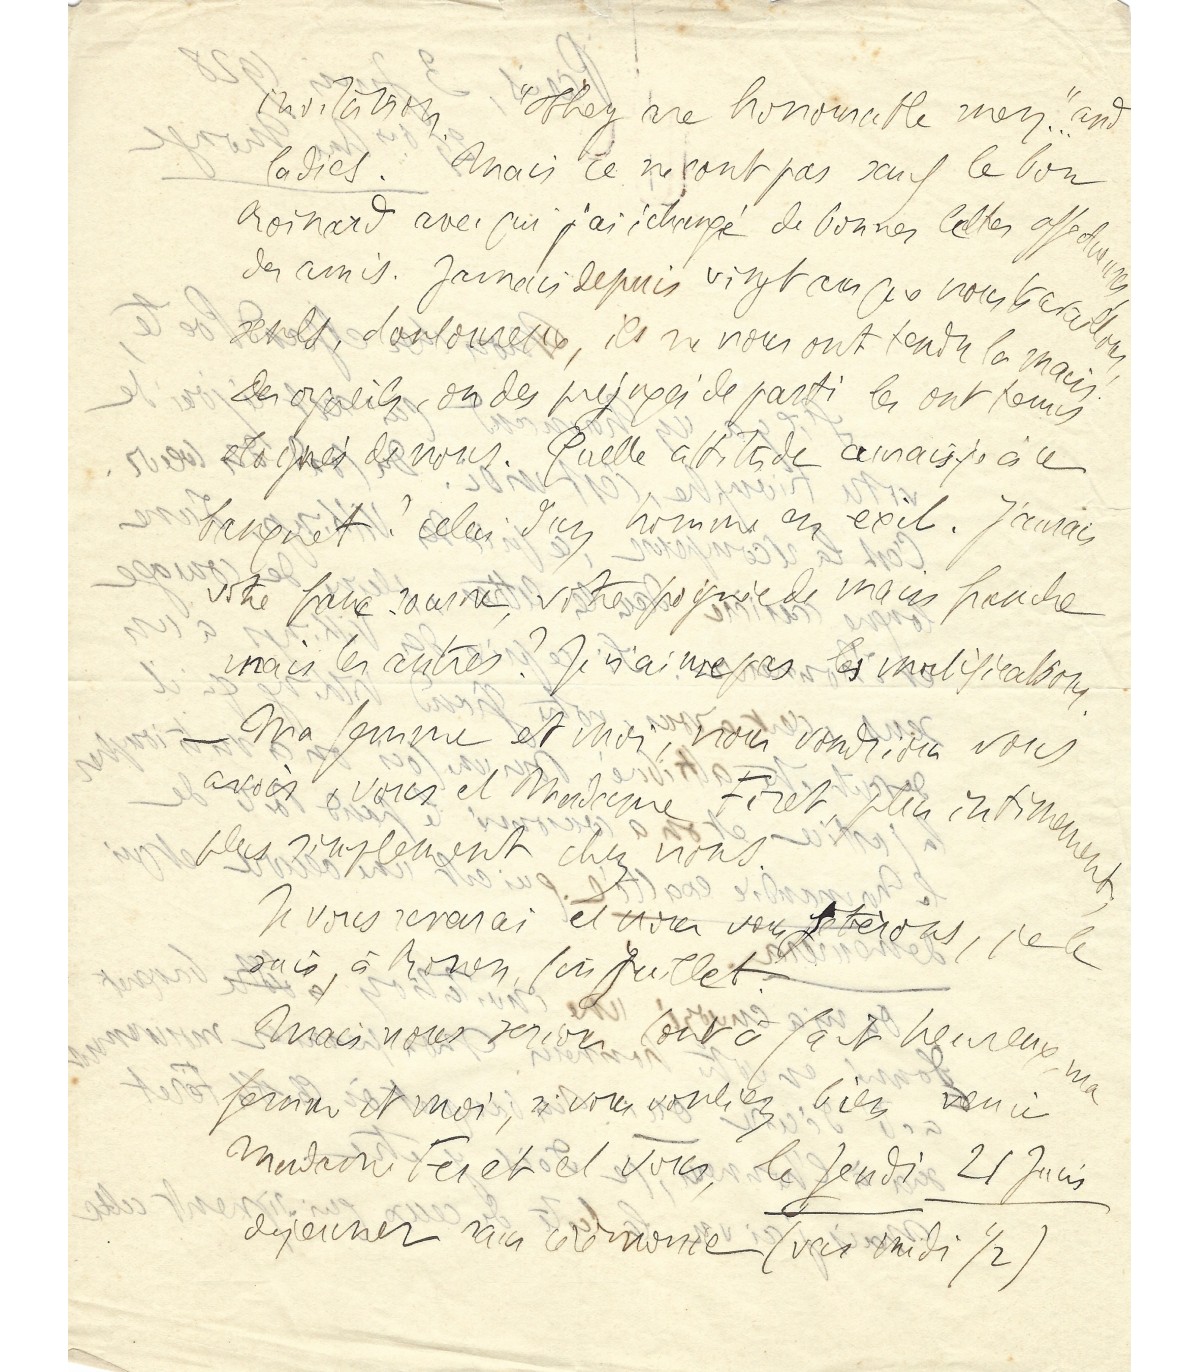 invitation. "They are honourable men..." and
ladies. Mais ce ne sont pas sauf le bon
Roinard avec qui j'ai échangé de bonnes lettres affectueuses
des amis. Jamais depuis vingt ans que nous travaillons,
seuls, douloureux, ils ne nous ont tendu la main.
Des orgueils, ou des préjugés de parti les ont tenus
éloignés de nous. Quelle attitude aurais-je à ce
banquet? celui d'un homme en exil. J'aurais
votre franc sourire, votre poignée de main franche
mais les autres? Je n'aime pas les mortifications.
— Ma femme et moi, nous voudrions vous
avoir, vous et Madame Féret, plus intimement,
plus simplement chez nous.
Je vous reverrai et nous vous fêterons, je le
sais, à Rouen, fin Juillet.
Mais nous serions tout à fait heureux, ma
femme et moi, si vous vouliez bien venir
Madame Féret et vous, le Jeudi 21 Juin
déjeuner sans cérémonie (vers midi 1/2)